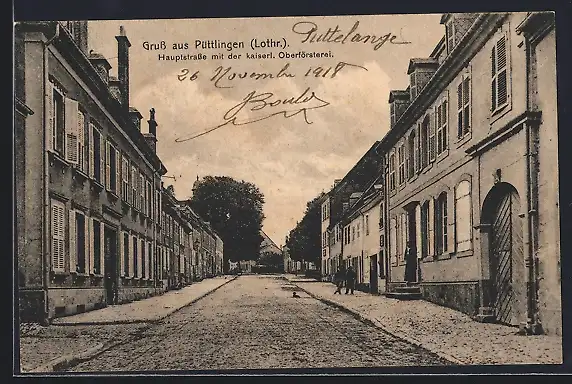 Gruß aus Püttlingen (Lothr.).
Puttelange
Hauptstraße mit der kaiserl. Oberförsterei.
26 Novembre 1918